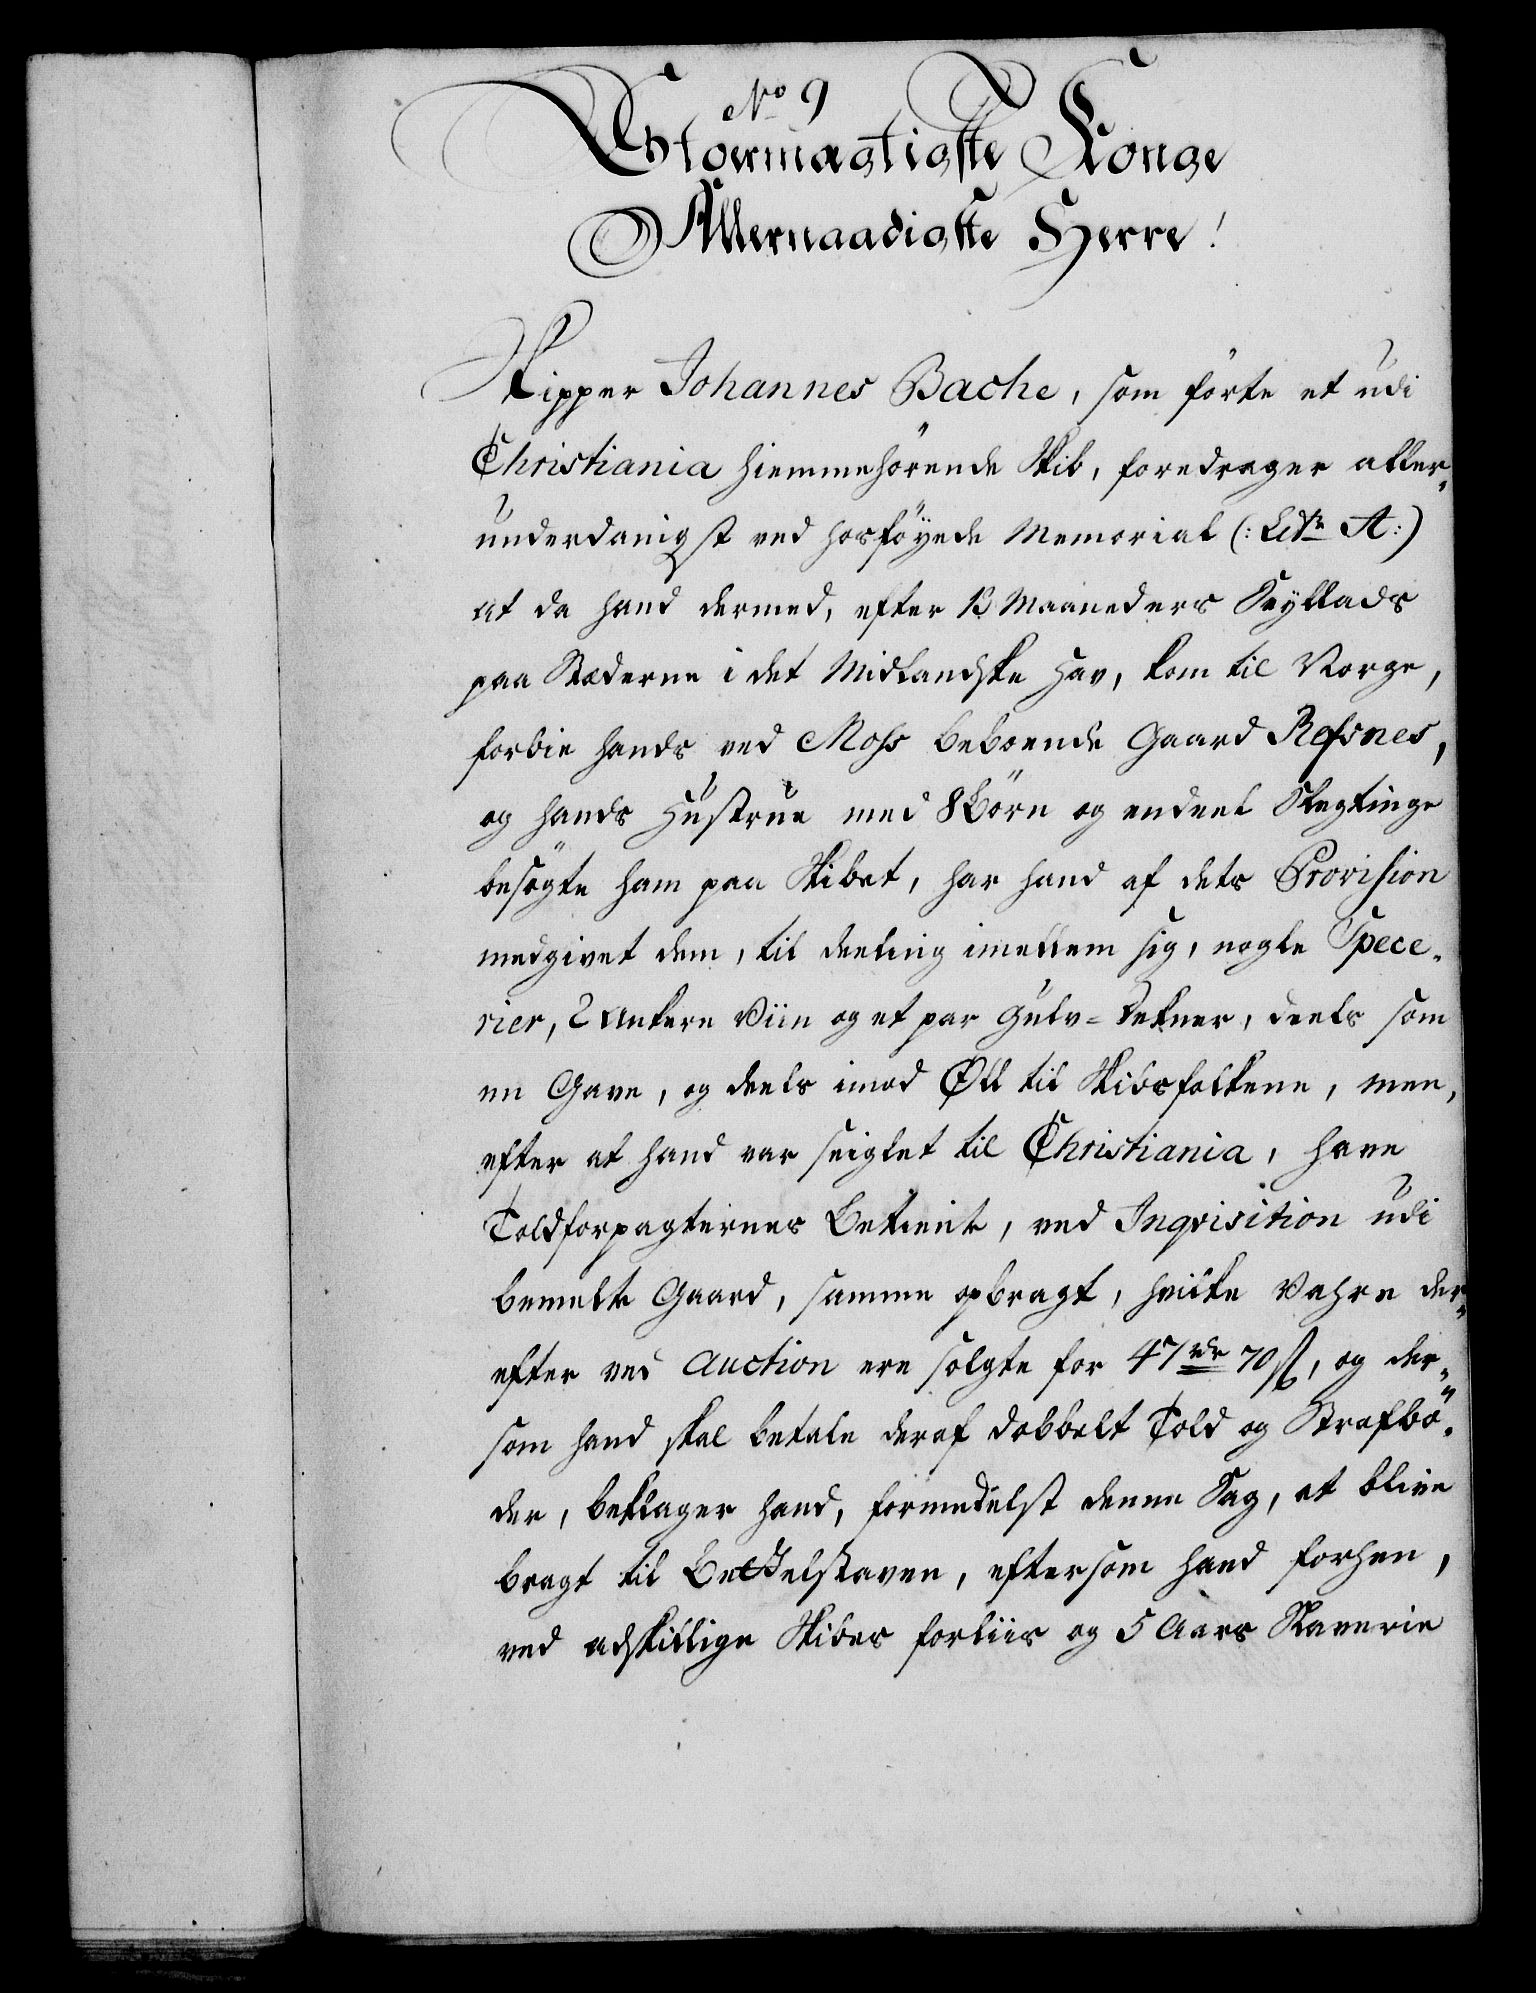 No 9
Stormægtigste Konge
Allernaadigste Herre!
Skipper Johannes Bache, som förte et udi
Christiania hiemmehörende Skib, foredrager aller-
underdanigst ved hosföyede Memorial (: Litr A:)
at da hand dermed, efter 13 Maaneders Seyllads
paa Stæderne i det Midlandske Hav, kom til Norge,
forbie hands ved Moss beboende Gaard Refsnes,
og hands Hustrue med 8 Börn og endeel Slegtinge
besögte ham paa Skibet, har hand af dets Provision
medgivet dem, til deeling imellem sig, nogle Spece-
rier, 2 Ankere Viin og et par Gulv-Dekner, deels som
en Gave, og deels imod Øll til Skibsfolkene, men,
efter at hand var seiglet til Christiania, have
Toldforpagternes Betient, ved Inqvisition udi
bemelte Gaard, samme opbragt, hvilke Vahre der-
efter ved Auction ere solgte for 47 rdr 70 ß, og der-
som hand skal betale deraf dobbelt Told og Strafbö-
der, beklager hand, formedelst denne Sag, at blive
bragt til Bettelstaven, eftersom hand forhen,
ved adskillige Skibes forliis og 5 Aars Slaverie